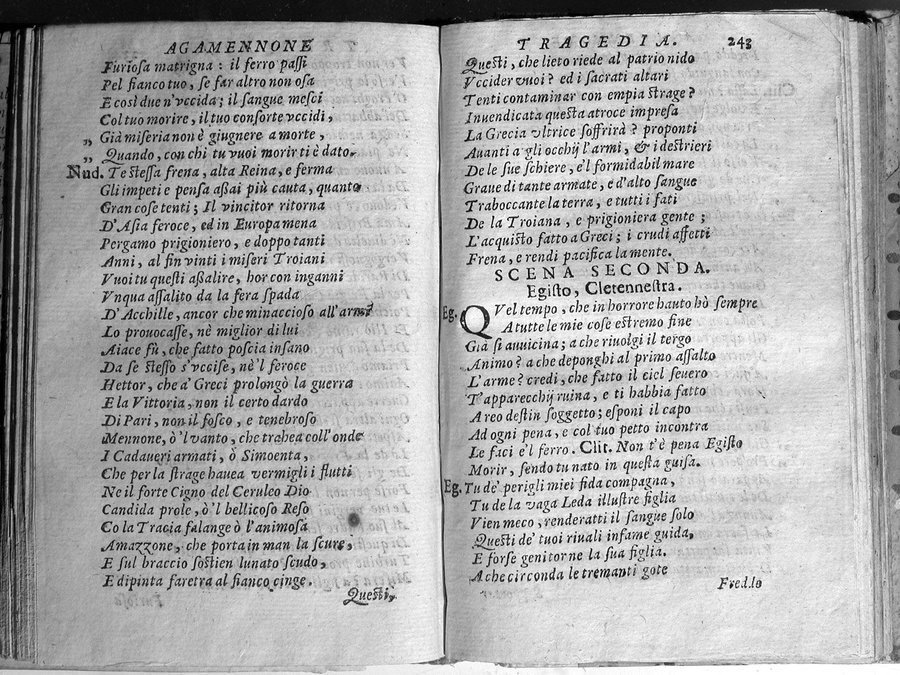 AGAMENNONE
Furiosa matrigna : il ferro passi
Pel fianco tuo, se far altro non osa
E così due n'vccida ; il sangue mesci
Col tuo morire, il tuo consorte vccidi,
„ Già miseria non è giugnere a morte,
„ Quando, con chi tu vuoi morir ti è dato.
Nud. Te stessa frena, alta Reina, e ferma
Gli impeti e pensa assai più cauta, quanto
Gran cose tenti ; Il vincitor ritorna
D'Asia feroce, ed in Europa mena
Pergamo prigioniero, e doppo tanti
Anni, al fin vinti i miseri Troiani
Vuoi tu questi assalire, hor con inganni
Vnqua assalito da la fera spada
D'Acchille, ancor che minaccioso all'armi
Lo prouocasse, nè miglior di lui
Aiace fù, che fatto poscia insano
Da se stesso s'vccise, nè'l feroce
Hettor, che a' Greci prolongò la guerra
E la Vittoria, non il certo dardo
Di Pari, non il fosco, e tenebroso
Mennone, ò'l vanto, che trahea coll'onde
I Cadaueri armati, ò Simoenta,
Che per la strage hauea vermigli i flutti
Ne il forte Cigno del Ceruleo Dio
Candida prole, ò'l bellicoso Reso
Co la Tracia falange ò l'animosa
Amazzone, che porta in man la scure,
E sul braccio sostien lunato scudo,
E dipinta faretra al fianco cinge.
Questi,
TRAGEDIA. 243
Questi, che lieto riede al patrio nido
Vccider vuoi ? ed i sacrati altari
Tenti contaminar con empia strage ?
Inuendicata questa atroce impresa
La Grecia vltrice soffrirà ? proponti
Auanti a gli occhij l'armi, & i destrieri
De le sue schiere, e'l formidabil mare
Graue di tante armate, e d'alto sangue
Traboccante la terra, e tutti i fati
De la Troiana, e prigioniera gente ;
L'acquisto fatto a Greci ; i crudi affetti
Frena, e rendi pacifica la mente.
SCENA SECONDA.
Egisto, Cletennestra.
Eg. QVel tempo, che in horrore hauto hò sempre
A tutte le mie cose estremo fine
Già si auuicina ; a che riuolgi il tergo
Animo ? a che deponghi al primo assalto
L'arme ? credi, che fatto il ciel seuero
T'apparecchij ruina, e ti habbia fatto
A reo destin soggetto ; esponi il capo
Ad ogni pena, e col tuo petto incontra
Le faci e'l ferro. Clit. Non t'è pena Egisto
Morir, sendo tu nato in questa guisa.
Eg. Tu de' perigli miei fida compagna,
Tu de la vaga Leda illustre figlia
Vien meco, renderatti il sangue solo
Questi de' tuoi riuali infame guida,
E forse genitor ne la sua figlia.
A che circonda le tremanti gote
Fred.lo